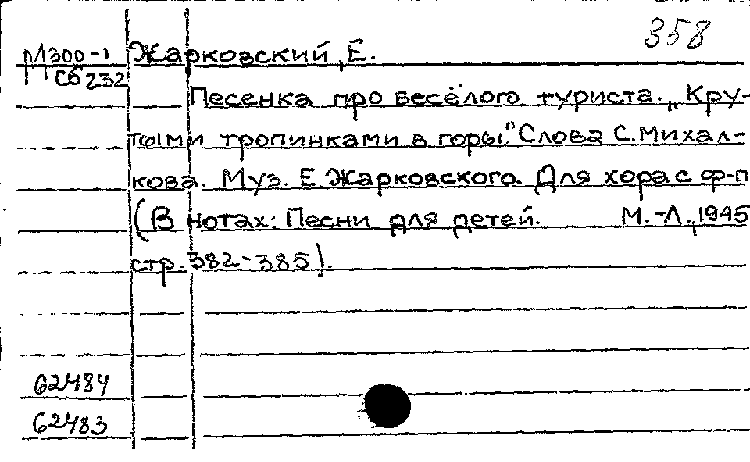 358
М300-1 Жарковский, Е.
Сб 232
Песенка про весёлого туриста. „Кру-
тыми тропинками в горы." Слова С. Михал-
кова. Муз. Е. Жарковского. Для хора с ф-п
(В нотах: Песни для детей. М.-Л., 1945
стр. 382-385).
62484
62483